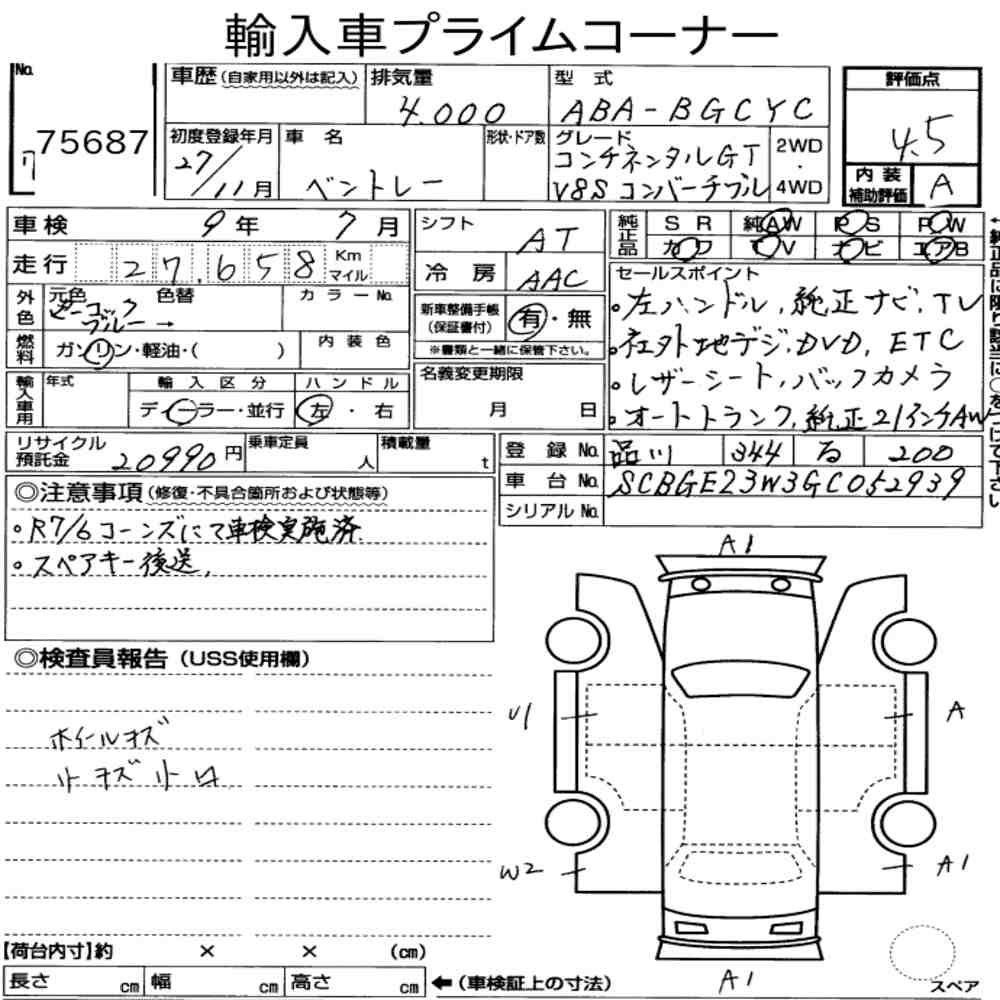 輸入車プライムコーナー
No.
75687
車歴(自家用以外は記入)
排気量
4.000
型 式
ABA-BGCYC
評価点
4.5
初度登録年月
27/11月
車 名
ベントレー
形状・ドア数
グレード
コンチネンタルGT
V8S コンバーチブル
2WD
・
4WD
内 装
補助評価
A
車検 9年 7月
走行 27,658 Km
マイル
シフト
AT
冷 房
AAC
純正品
SR 純AW PS PW
カワ TV ナビ エアB
外色
元色 色替
ピーコック
ブルー →
カラーNo.
燃料
ガソリン・軽油・( )
内 装 色
新車整備手帳
(保証書付)
有・無
※書類と一緒に保管下さい。
セールスポイント
・左ハンドル,純正ナビ,TV
・社外地デジ,DVD,ETC
・レザーシート,バックカメラ
・オートトランク,純正21インチAW
輸入車用
年式
輸 入 区 分
ディーラー・並行
ハ ン ド ル
左・右
名義変更期限
月 日
リサイクル
預託金
20990円
乗車定員
人
積載量
t
登 録 No. 品川 344 る 200
車 台 No. SCBGE23W3GC052939
シリアル No.
◎注意事項(修復・不具合箇所および状態等)
・R7/6コーンズにて車検実施済
・スペアキー後送,
◎検査員報告(USS使用欄)
ホイールキズ
A1
U1
A
W2
A1
A1
【荷台内寸】約 × × (cm)
長さ cm 幅 cm 高さ cm ←(車検証上の寸法)
スペア